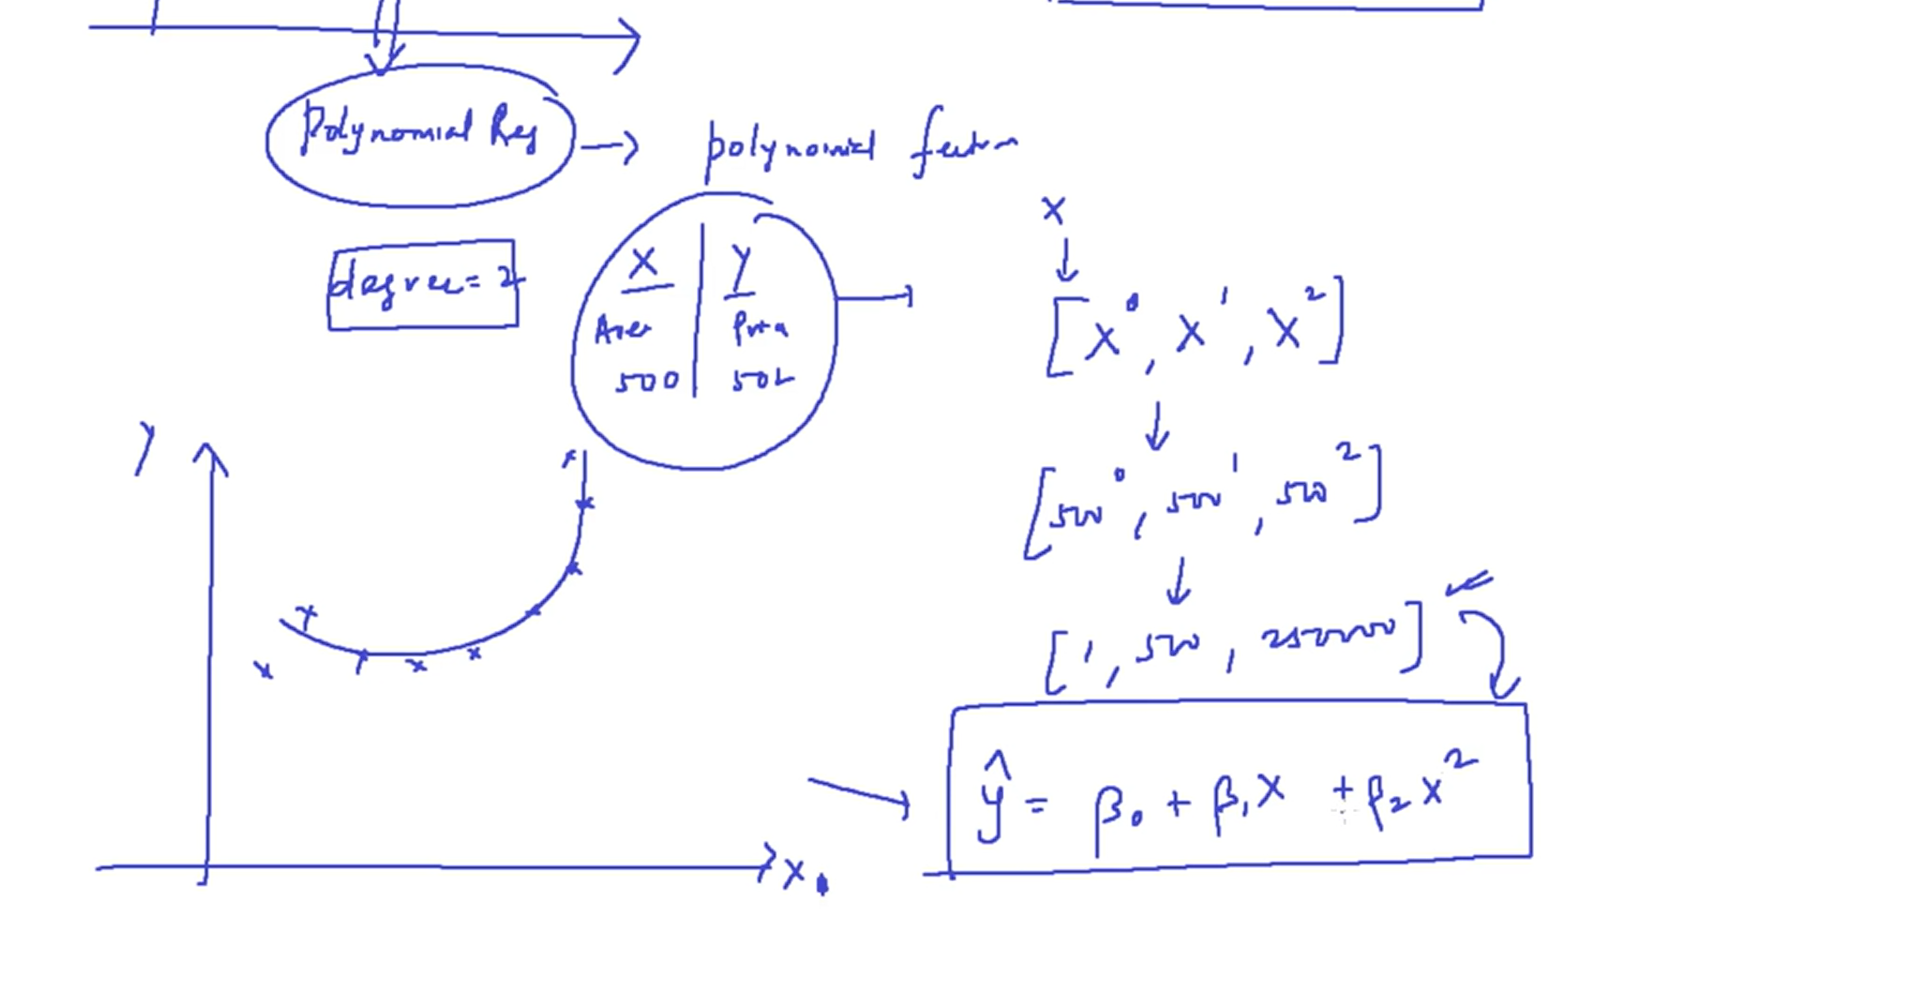 Polynomial Reg → polynomial
degree = 2
X | Y
500 | 50L
X
↓
[X⁰, X¹, X²]
↓
[500⁰, 500¹, 500²]
↓
[1, 500, 250000]
ŷ = β₀ + β₁X + β₂X²
Y
X